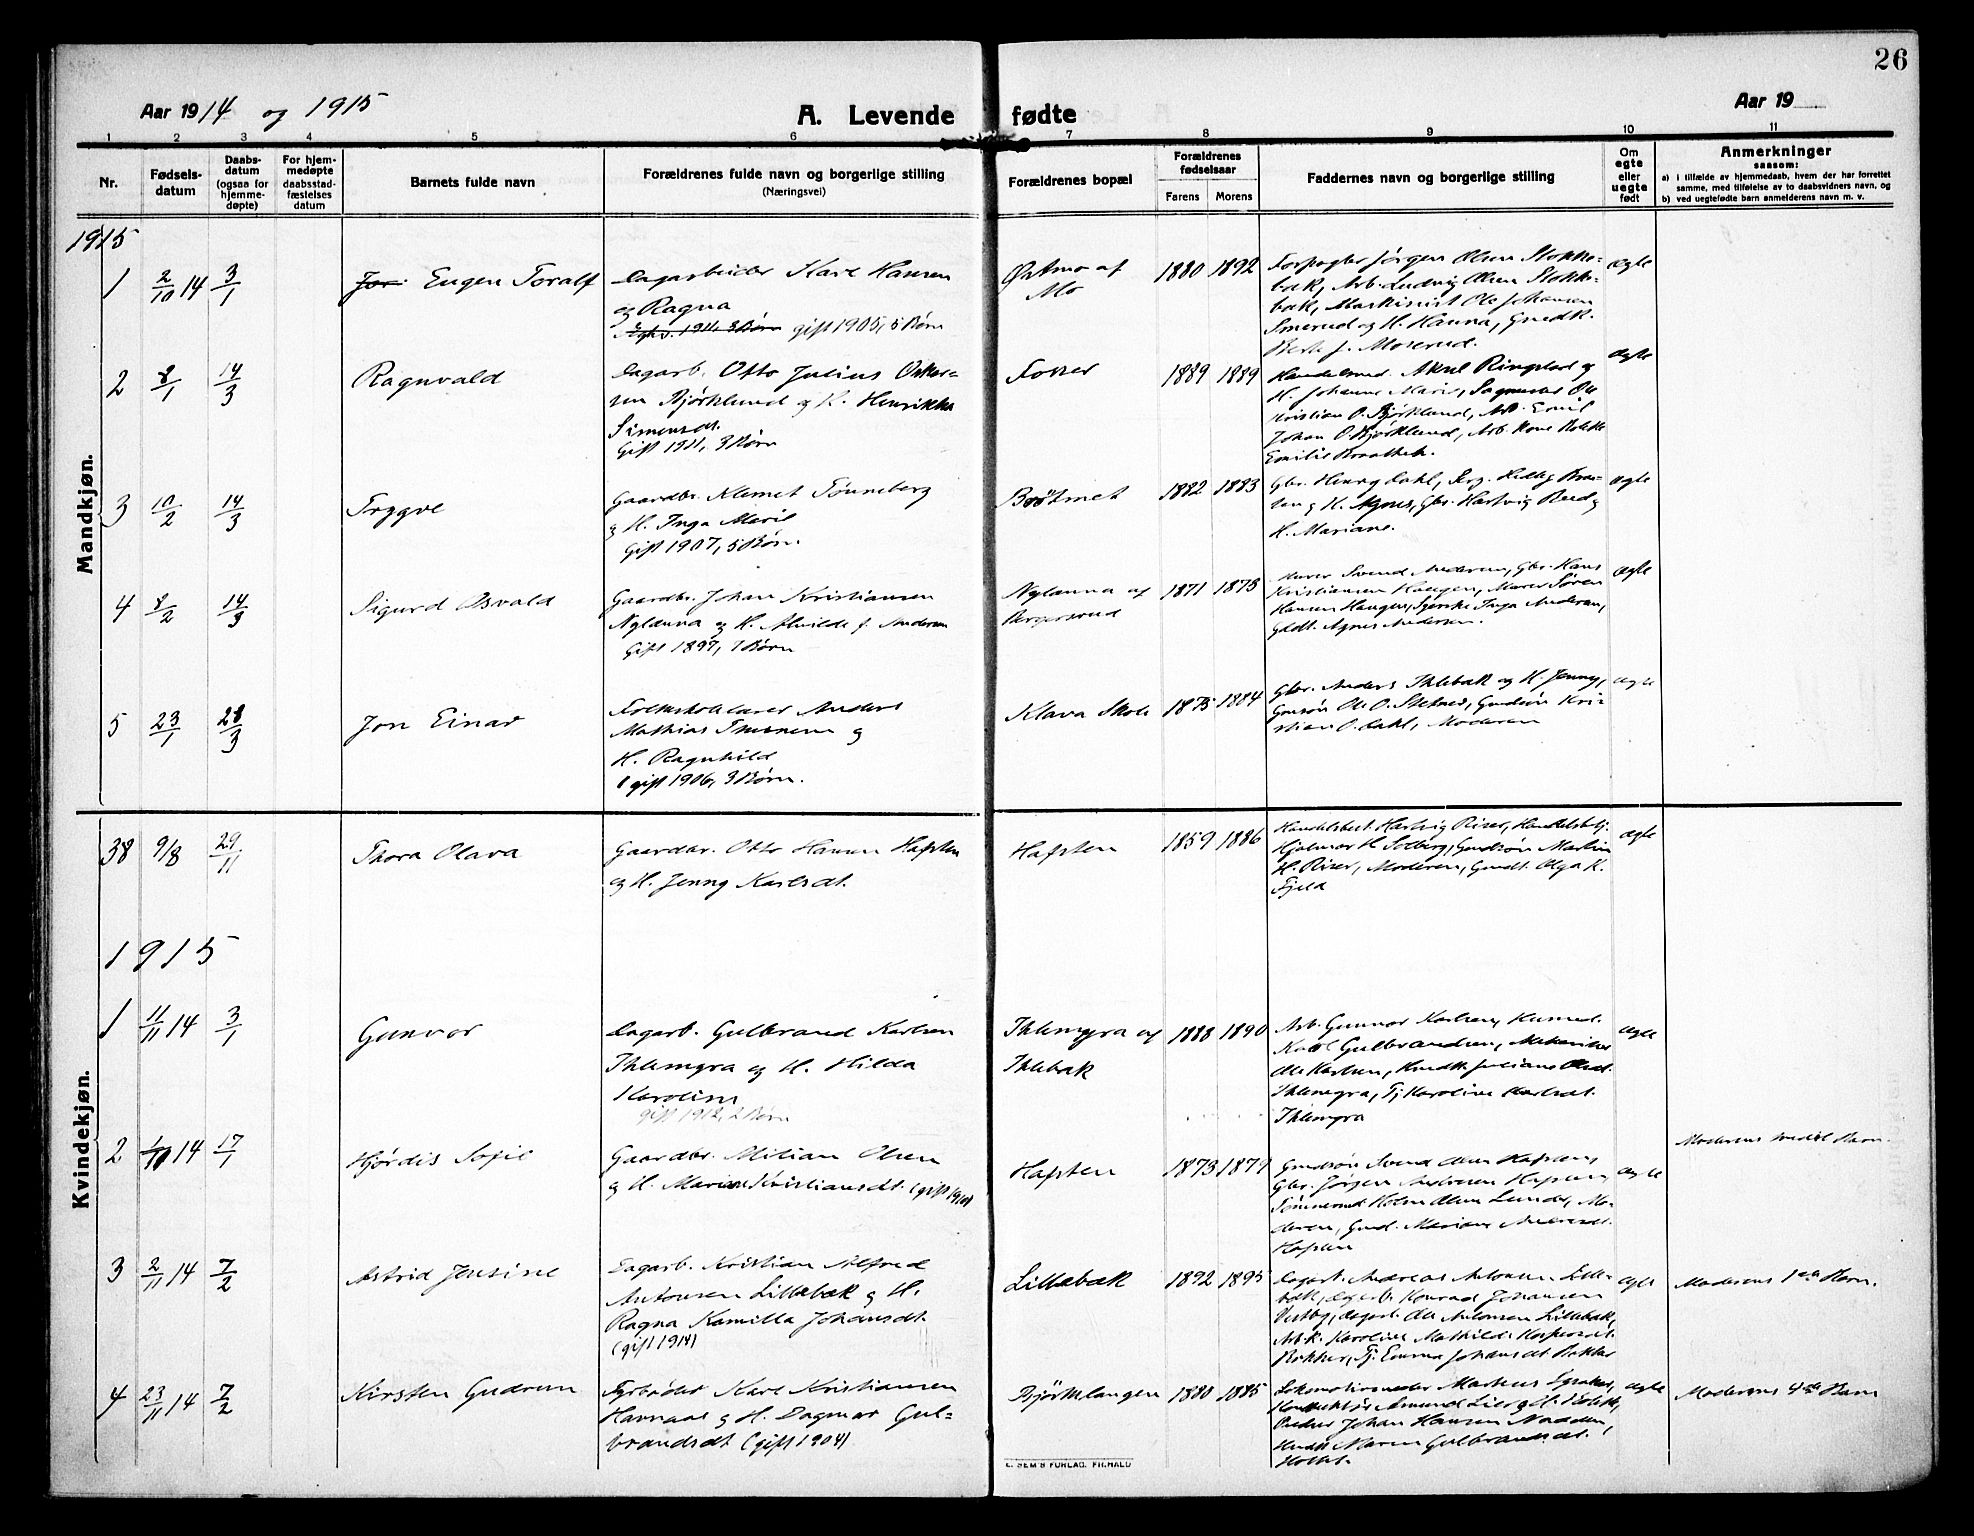 26
Aar 1914 og 1915
A. Levende fødte
Aar 19
1 2 3 4 5 6 7 8 9 10 11
Nr.
Fødsels-
datum
Daabs-
datum
(ogsaa for
hjemme-
døpte)
For hjem-
medøpte
daabsstad-
fæstelses
datum
Barnets fulde navn
Forældrenes fulde navn og borgerlige stilling
(Næringsvei)
Forældrenes bopæl
Forældrenes
fødselsaar
Farens Morens
Faddernes navn og borgerlige stilling
Om
egte
eller
uegte
født
Anmerkninger
saasom:
a) i tilfælde av hjemmedaab, hvem der har forrettet
samme, med tilføielse av to daabsvidners navn, og
b) ved uegtefødte barn anmelderens navn m. v.
Mandkjøn.
1915
1 2/10 14 3/1 Eugen Toralf
Dagarbeider Karl Hansen
og Ragna
gift 1905, 5 Børn
Østmo af
Mo
1880 1892
Forpagter Jørgen Olsen Stokke-
bæk, Arb. Ludvig Olsen Stokke-
bæk, Maskinist Ole Johansen
Smerud og H. Hanna, Gaardk.
Moserud.
ægte
2 8/1 14/3 Ragnvald
Dagarb. Otto Julius Oskar-
sen Bjørklund og H. Henrikke
Simensdt.
Gift 1911, 3 Børn
Fosser
1889 1889
Handelsmd. Aksel Ringstad og
H. Johanne Marie, Ole
Kristian O. Bjørklund, Arb. Emil
Johan O. Bjørklund, Arb. Kone
Emilie Braathen.
ægte
3 10/2 14/3 Trygve
Gaardbr. Klemet Tønneberg
og H. Inga Marie
Gift 1907, 5 Børn
1882 1883
Gbr. Henry Dahl,
og H. Agnes, Gbr. Hartvig Rud og
H. Mariane.
ægte
4 8/2 14/3 Sigurd Osvald
Gaardbr. Johan Kristiansen
Nylænna og H. Alvilde f. Andersen
Gift 1897, 7 Børn
Nylænna af
Bergerud
1871 1875
Svend Andersen, Gbr. Hans
Kristiansen Haugen, Murer Søren
Hansen Haugen, Syerske Inga Andersen,
Gdt. Agnes Andersen.
ægte
5 23/1 28/3 Jon Einar
Folkeskolelærer Anders
Mathias Simonsen og
H. Ragnhild
gift 1906, 3 Børn.
Klava Skole
1875 1884
Gbr. Anders Ihlebæk og H. Jenny,
Gaardsøn Ole O. Gaardsøn Kri-
stian O. Dahl, Moderen
ægte
Kvindekjøn.
38 9/8 29/11 Thora Olava
Gaardbr. Otto Hansen Hafsten
og H. Jenny Karlsdt.
Hafsten
1859 1886
Handelsbest. Hartvig Riser, Handelsbetj.
Hjalmar H. Solberg, Gaardsøn Martin
H. Riser, Moderen, Gaardt. Olga K.
Fjeld
ægte
1915
1 11/11 14 3/1 Gunvor
Dagarb. Gulbrand Karlsen
Ihlemyra og H. Hilda
Karoline
gift 1912, 2 Børn
Ihlemyra af
Ihlebæk
1888 1890
Arb. Gunnar Karlsen,
Karl Gulbrandsen,
Ole Karlsen, Juliane Olsdt.
Ihlemyra, Tj. Karoline Karlsdt.
Ihlemyra
ægte
2 1/10 14 17/1 Hjørdis Sofie
Gaardbr. Milian Olsen
og H. Marie Kristiansdt. (gift 1910)
Hafsten
1873 1879
Gaardsøn Svend Olsen Hafsten,
Gbr. Jørgen Andersen Hafsten,
Tømmermd. Holm Olsen Lunde, Mo-
deren, Gaard. Mariane Andersdt.
Hafsten
ægte
Moderens Barn.
3 2/11 14 7/2 Astrid Jensine
Dagarb. Kristian Alfred
Antonsen Lillebæk og H.
Ragna Kamilla Johansdt.
(gift 1914)
Lillebæk
1892 1895
Dagarb. Andreas Antonsen Lille-
bæk, Dagarb. Konrad Johansen
Vestby, Dagarb. Ole Antonsen Lillebæk,
Arb.k. Karoline Mathilde Kaspersdt.
Bakker, Tj. Emma Johansdt. Bakker
ægte
Moderens 1ste Barn.
4 23/11 14 7/2 Kirsten Gudrun
Fyrbøder Karl Kristiansen
Havnaas og H. Dagmar Gul-
brandsdt. (gift 1904)
Bjørklangen
1880 1885
Lokomotivmester Markus
Konduktør Amund Lier og H.
Johan Hansen Nadden,
Maren Gulbrandsdt.
ægte
Moderens 4de Barn
E. SEM'S FORLAG, FR.HALD